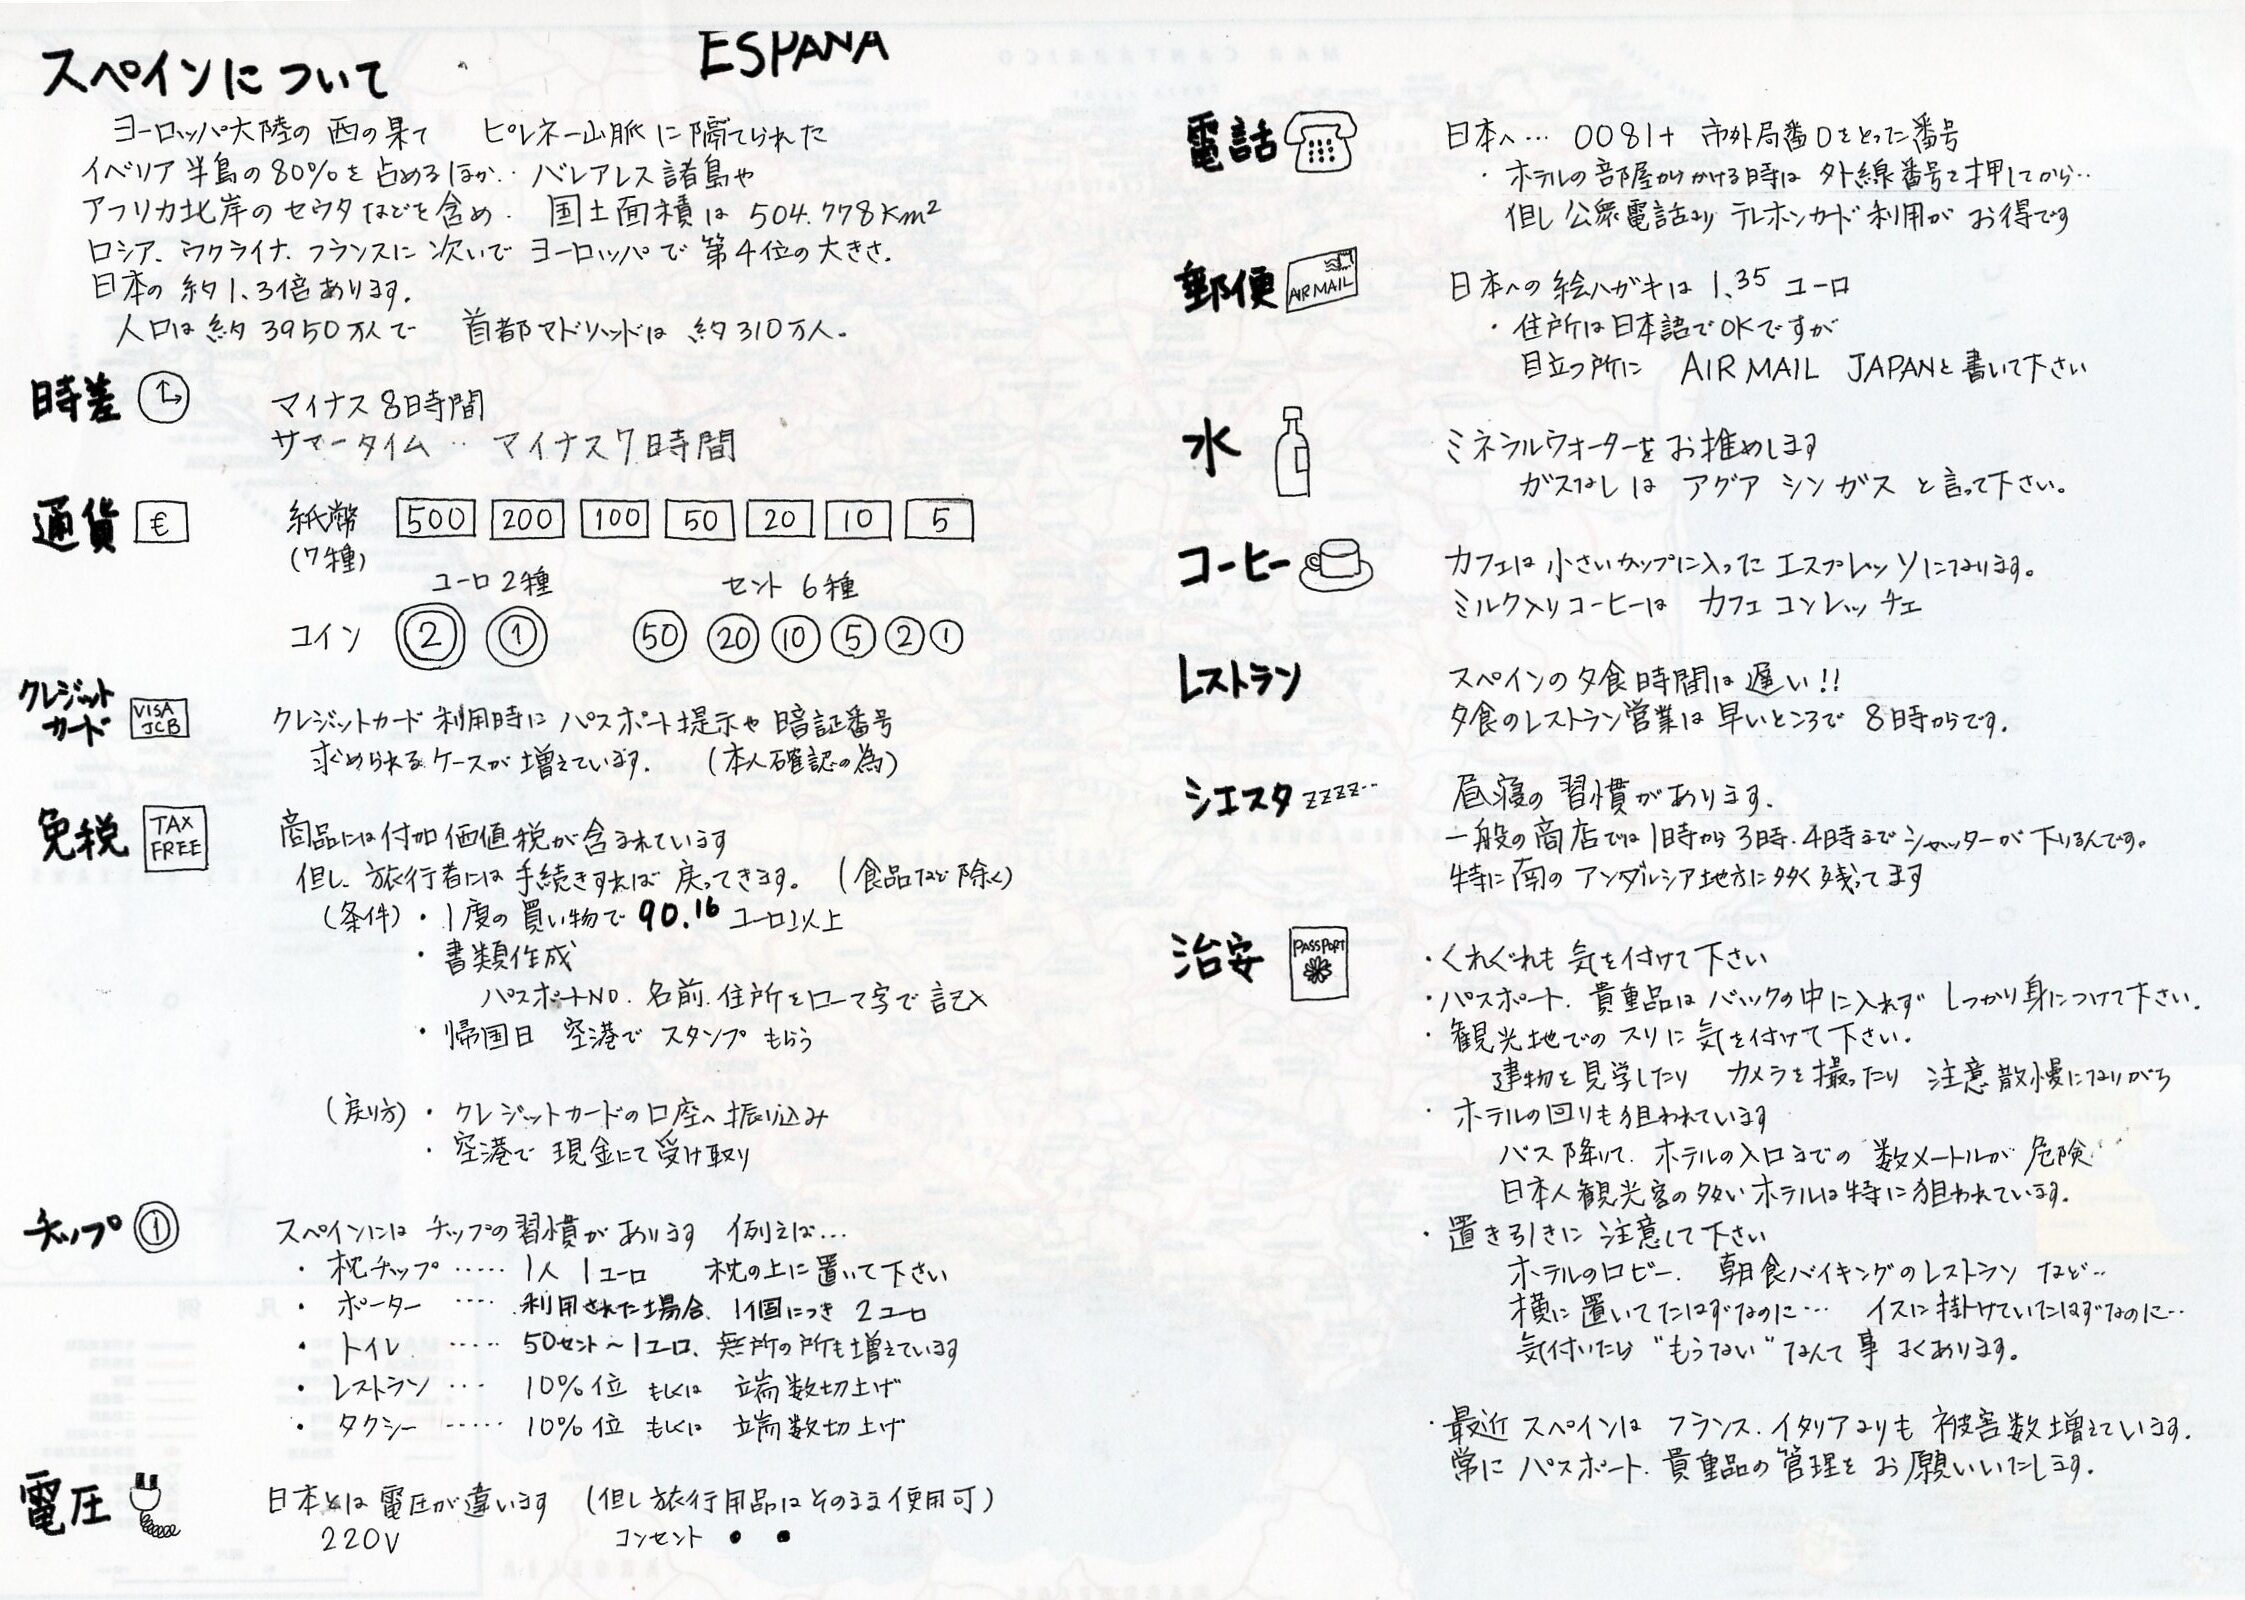 ESPANA
スペインについて
ヨーロッパ大陸の西の果て ピレネー山脈に隔てられた
イベリア半島の80%を占めるほか‥バレアレス諸島や
アフリカ北岸のセウタなどを含め. 国土面積は 504.778Km²
ロシア、ウクライナ、フランスに次いでヨーロッパで第4位の大きさ.
日本の約1.3倍あります.
人口は約3950万人で 首都マドリッドは約310万人。
時差
マイナス8時間
サマータイム‥マイナス7時間
通貨 €
紙幣 500 200 100 50 20 10 5
(7種)
ユーロ2種 セント6種
コイン 2 1 50 20 10 5 2 1
クレジットカード VISA JCB
クレジットカード利用時にパスポート提示や暗証番号
求められるケースが増えています. (本人確認の為)
免税 TAX FREE
商品には付加価値税が含まれています
但し、旅行者には手続きすれば戻ってきます。(食品など除く)
(条件)・1度の買い物で90.16ユーロ以上
・書類作成
パスポートNO.名前.住所をローマ字で記入
・帰国日 空港でスタンプもらう
(戻り方)・クレジットカードの口座へ振り込み
・空港で現金にて受け取り
チップ 1
スペインにはチップの習慣があります 例えば…
・枕チップ‥‥‥1人1ユーロ 枕の上に置いて下さい
・ポーター‥‥利用された場合、1個につき2ユーロ
・トイレ‥‥‥50セント〜1ユーロ、無所の所も増えています
・レストラン‥‥10%位 もしくは 端数切上げ
・タクシー‥‥‥10%位 もしくは 端数切上げ
電圧
日本とは電圧が違います (但し旅行用品はそのまま使用可)
220V コンセント ● ●
電話
日本へ… 0081+ 市外局番0をとった番号
・ホテルの部屋からかける時は 外線番号を押してから‥
但し公衆電話よりテレホンカード利用がお得です
郵便 AIR MAIL
日本への絵ハガキは1.35ユーロ
・住所は日本語でOKですが
目立つ所に AIR MAIL JAPANと書いて下さい
水
ミネラルウォーターをお推めします
ガスなしは アグア シン ガス と言って下さい。
コーヒー
カフェは小さいカップに入ったエスプレッソになります。
ミルク入りコーヒーは カフェ コン レッチェ
レストラン
スペインの夕食時間は遅い!!
夕食のレストラン営業は早いところで8時からです.
シエスタ zzzz‥
昼寝の習慣があります.
一般の商店では1時から3時.4時までシャッターが下りるんです。
特に南のアンダルシア地方に多く残ってます
治安 PASSPORT
・くれぐれも気を付けて下さい
・パスポート、貴重品はバックの中に入れず しっかり身につけて下さい.
・観光地でのスリに気を付けて下さい.
建物を見学したり カメラを撮ったり 注意散慢になりがち
・ホテルの回りも狙われています
バス降りて、ホテルの入口までの数メートルが危険
日本人観光客の多いホテルは特に狙われています.
・置き引きに注意して下さい
ホテルのロビー. 朝食バイキングのレストラン など‥
横に置いてたはずなのに… イスに掛けていたはずなのに…
気付いたら"もうない"なんて事よくあります。
・最近スペインはフランス、イタリアよりも被害数増えています.
常にパスポート、貴重品の管理をお願いいたします.